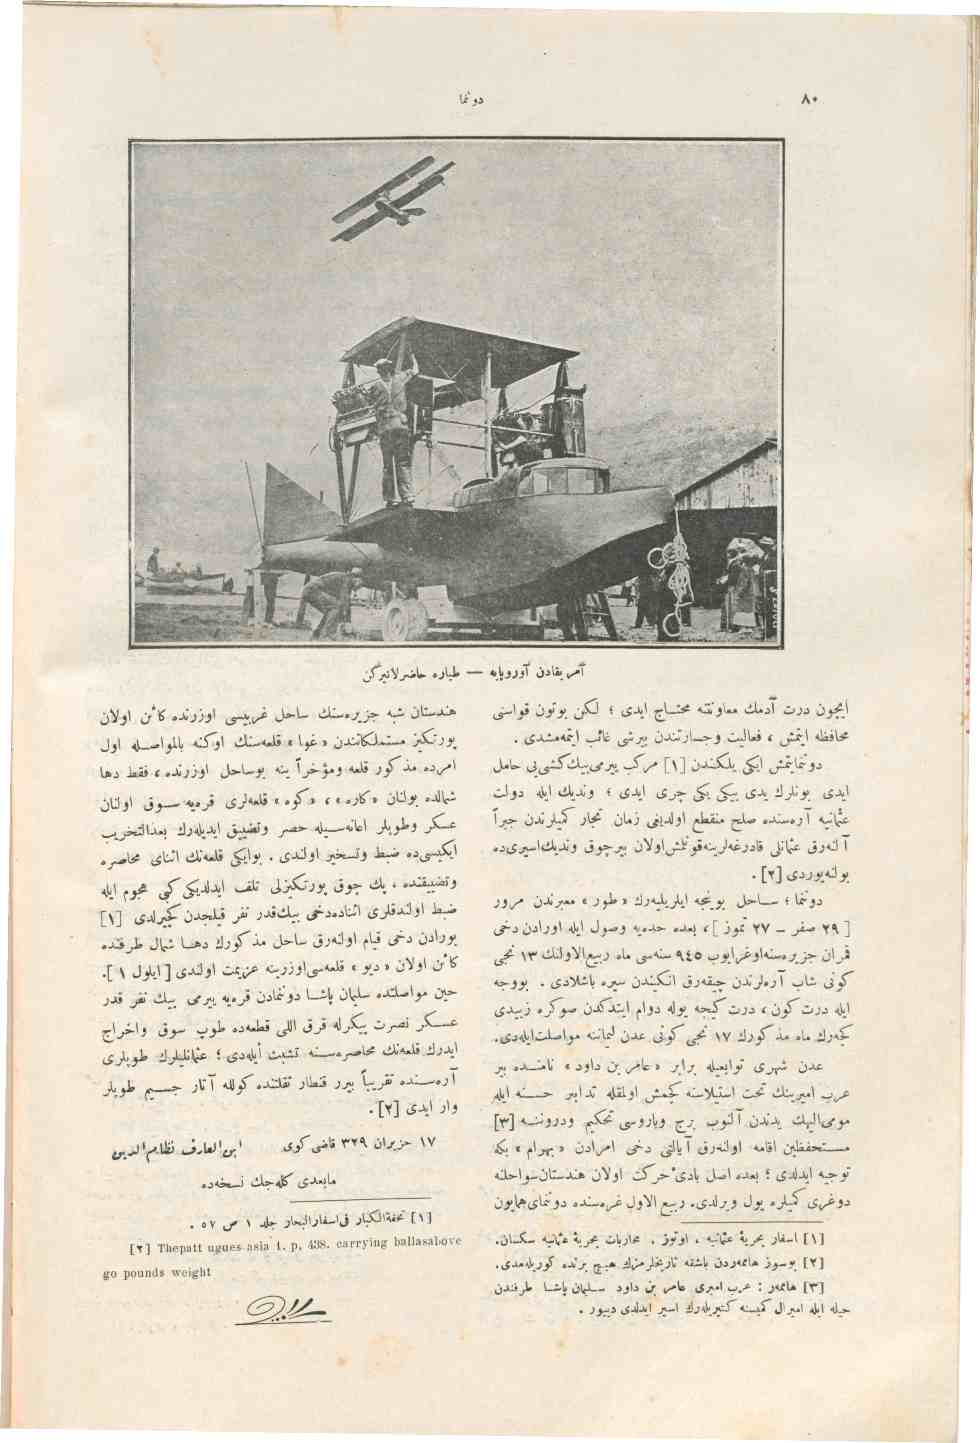 ٨٠
دونما
آمریقادن آوروپایه — طیاره حاضرلانیرکن
ایچون درت آدمك معاونتنه محتاج ایدی ؛ لكن بوتون قواسنی
محافظه ایتمش ، فعالیت وجسارتندن بر شی غائب ایتمه‌مشدی .
دوننما یتمش ایكی یلكندن [١] مركب یرمی بیك كشی‌یی حامل
ایدی بونلرك یدی بیكی یكی چری ایدی ؛ وندیك ایله دولت
عثمانیه آره‌سنده صلح منقطع اولدیغی زمان تجار كمیلرندن جبراً
آلنه‌رق عثمانلی قادرغه‌لرینه قونلش اولان بر چوق وندیك اسیری ده
بولنه‌یوردی [٢] .
دوننما ؛ ساحل بوینجه ایلریلیه‌رك « طور » معبرندن مرور
[ ٢٩ صفر – ٢٧ تموز ] ، بعده جده‌یه وصول ایله اورادن دخی
قمران جزیره‌سنه اوغرایوب ٩٤٥ سنه‌سی ماه ربیع‌الاولنك ١٣ نجی
كونی شاب آره‌لرندن چیقه‌رق انكیندن سیره باشلادی . بووجه
ایله درت كون ، درت كیجه یوله دوام ایتدكدن صوكره زبیدی
كچه‌رك ماه مذكورك ١٧ نجی كونی عدن لیماننه مواصلت ایله‌دی.
عدن شهری توابعیله برابر « عامر بن داود » نامنده بر
عرب امیرینك تحت استیلاسنه كچمش اولمقله تدابیر حسنه ایله
مومی‌الیهك یدندن آلنوب برج وباروسی تحكیم ودروننه [٣]
مستحفظین اقامه اولنه‌رق آیالتی دخی امرادن « بهرام » بكه
توجیه ایدلدی ؛ بعده اصل بادئ حركت اولان هندستان سواحلنه
دوغری كمیلره یول ویرلدی. ربیع الاول غره‌سنده دونمای همایون
[١] اسفار بحریۀ عثمانیه ، اوتوز . محاربات بحریۀ عثمانیه سكسان.
[٢] بوسوز هاممه‌ردن باشقه تاریخلرمزك هیچ برنده كوریله‌مدی.
[٣] هاممه‌ر : عرب امیری عامر بن داود سلیمان پاشا طرفندن
حیله ایله امیرال كمیسنه كتیریله‌رك اسیر ایدلدی دییور .
هندستان شبه جزیره‌سنك ساحل غربیسی اوزرنده كائن اولان
پورتكیز مستملكاتندن « غوا » قلعه‌سنك اوكنه بالمواصله اول
امرده مذكور قلعه ومؤخراً ینه بوساحل اوزرنده ، فقط دها
شمالده بولنان « كاره » ، « كوه » قلعه‌لری قره‌یه سوق اولنان
عسكر وطوپلر اعانه‌سیله حصر وتضییق ایدیله‌رك بعدالتخریب
ایكیسی ده ضبط وتسخیر اولندی . بوایكی قلعه‌نك اثنای محاصره
وتضییقنده ، پك چوق پورتكیزلی تلف ایدلدیكی كبی هجوم ایله
ضبط اولندقلری اثناده‌دخی بیك‌قدر نفر قیلجدن كچیرلدی [١]
بورادن دخی قیام اولنه‌رق ساحل مذكورك دها شمال طرفنده
كائن اولان « دیو » قلعه‌سی اوزرینه عزیمت اولندی [ ایلول ١ ].
حین مواصلتده سلیمان پاشا دونمادن قره‌یه یرمی بیك نفر قدر
عسكر نصرت پیكرله قرق اللی قطعه‌ده طوپ سوق واخراج
ایدرك قلعه‌نك محاصره‌سنه تشبث ایله‌دی ؛ عثمانلیلرك طوپلری
آره‌سنده تقریباً بیرر قنطار ثقلتنده كولله آتار جسیم طوپلر
وار ایدی [٢] .
١٧ حزیران ٣٢٩ قاضی كوی
ابن‌العارف نظام‌الدین
مابعدی كله‌جك نسخه‌ده
[١] تحفةالكبار فی‌اسفارالبحار جلد ١ ص ٥٧ .
[٢] Thepatt ugues asia t. p, 438. carrying ballasabove
go pounds weight